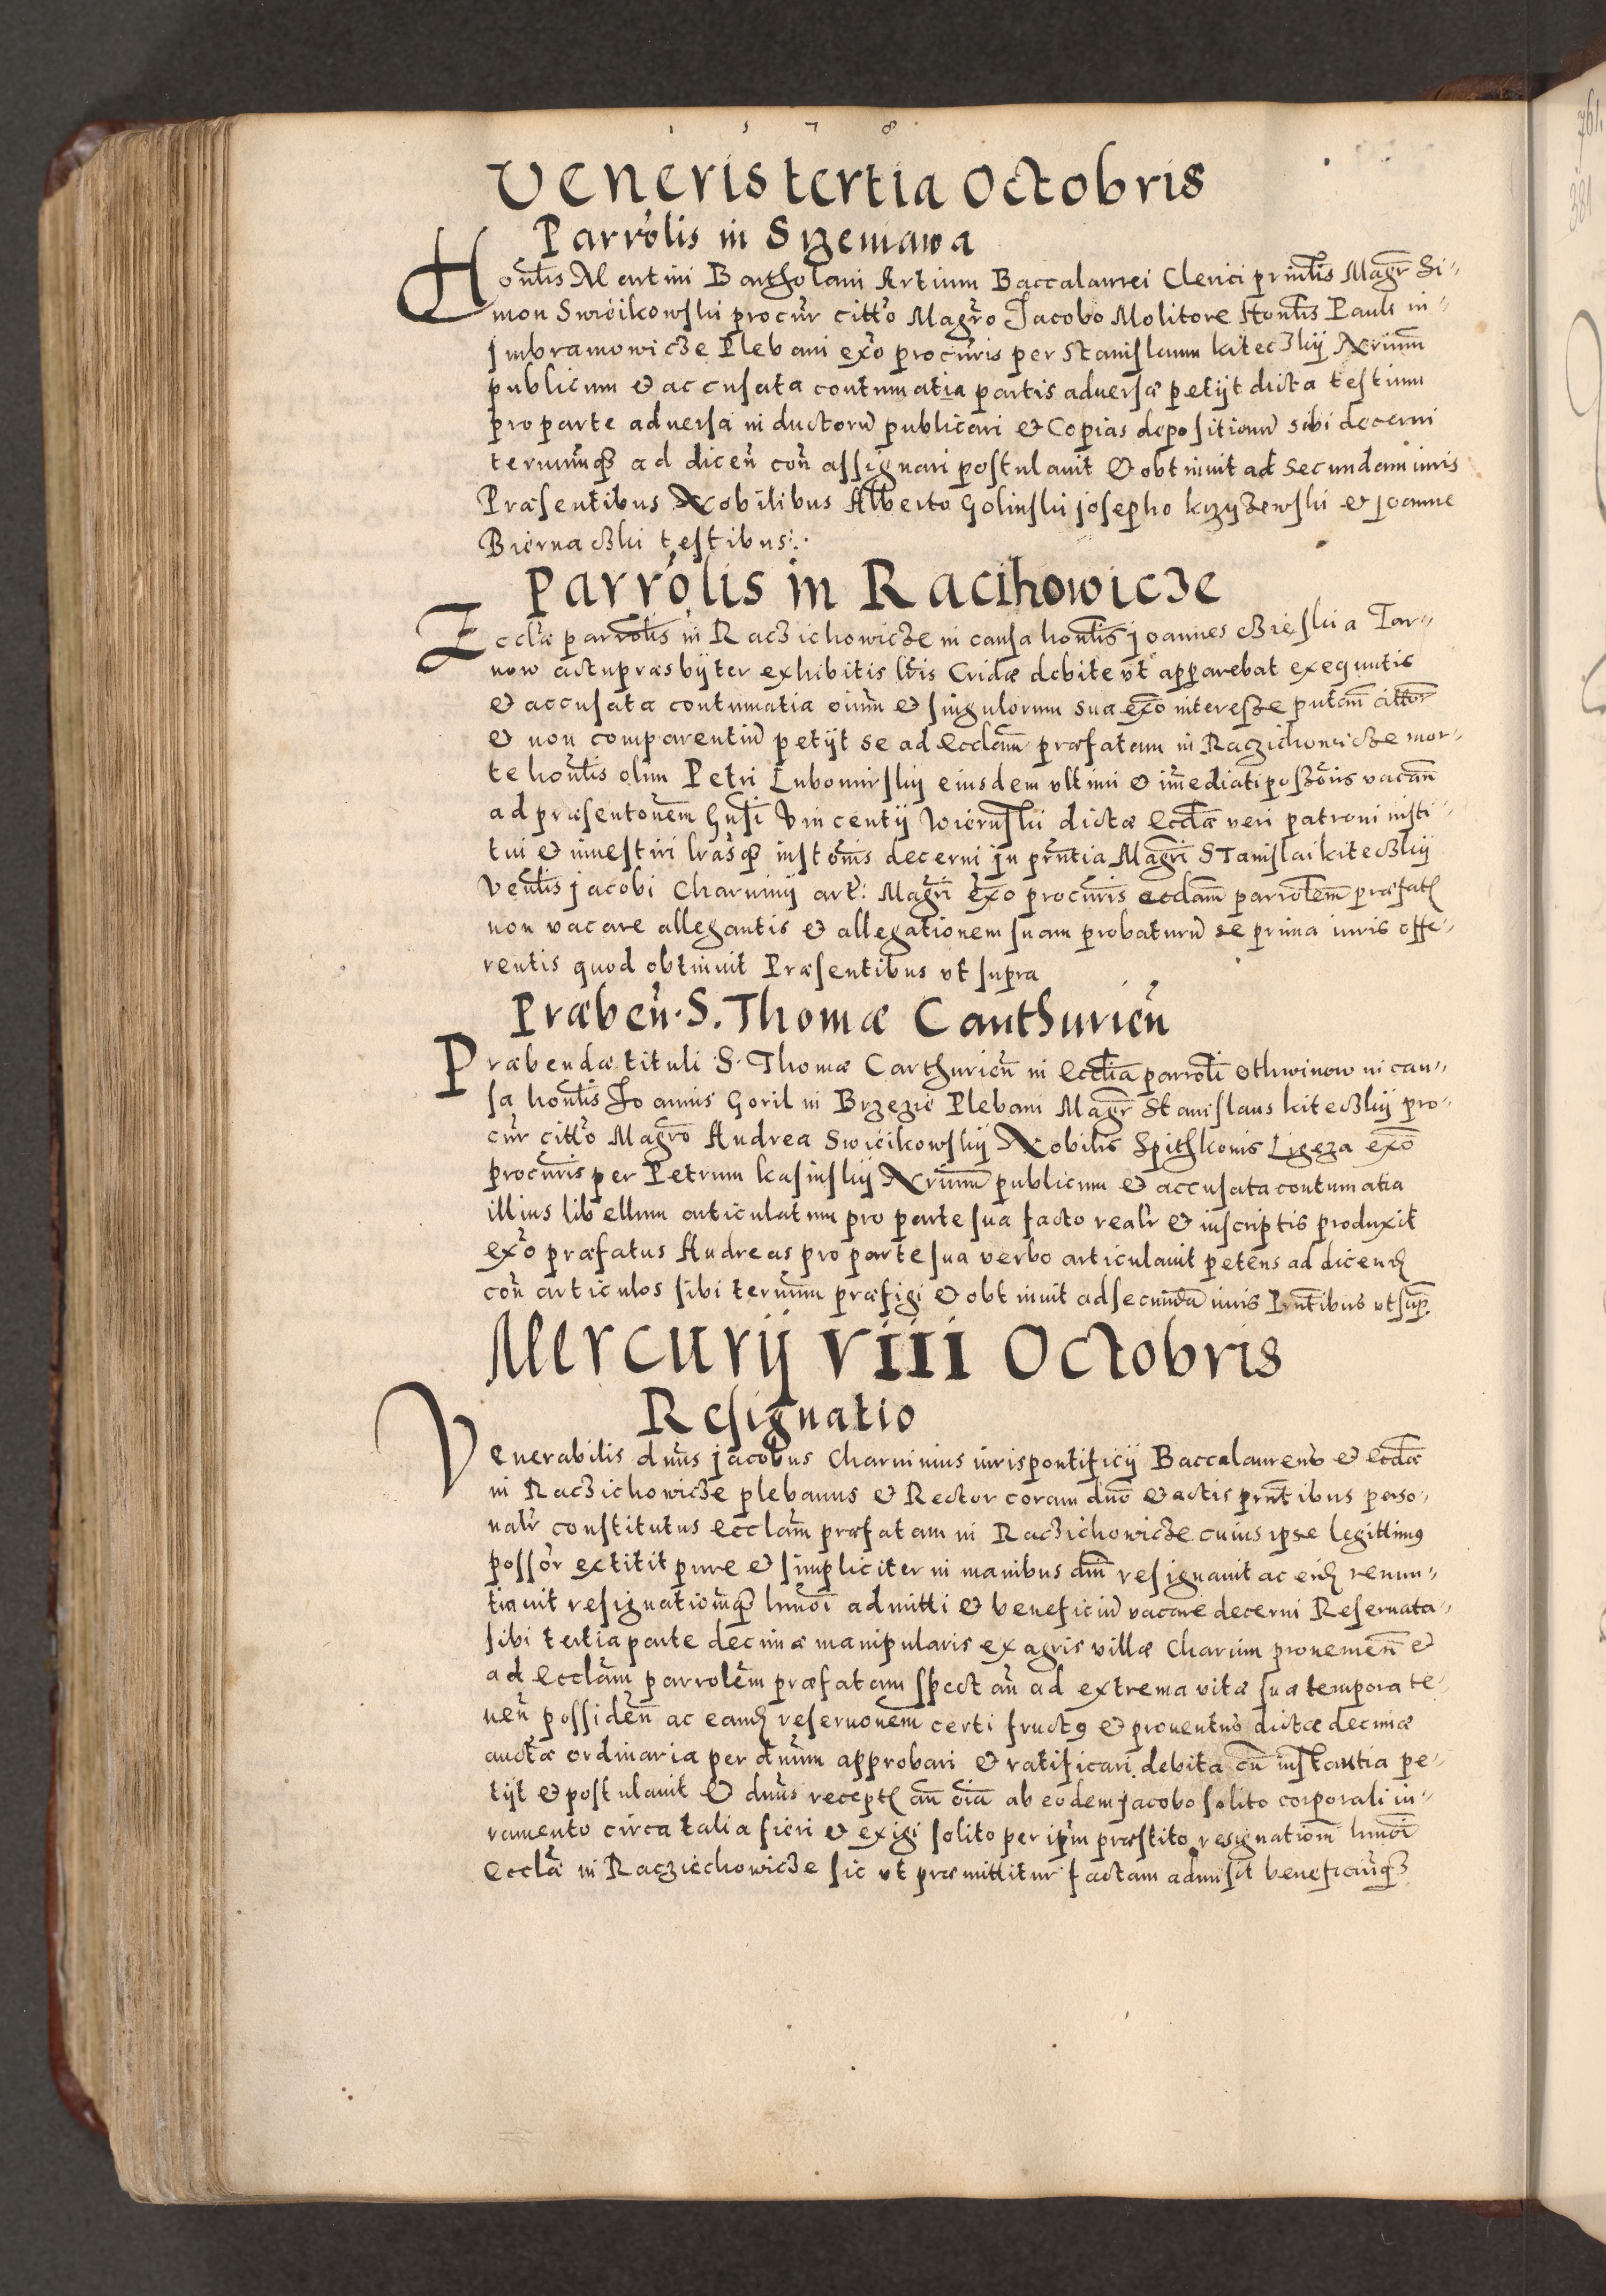 1 5 7 8
Veneris tertia Octobris
Parrolis in Srzeniawa
Honlis Martini Bartholani Artium Baccalaurei Clerici principlis Magr Si„
mon Swiéikowski procur citto Magro Jacobo Molitore Honlis Pauli in„
Imbramowicze Plebani exo procuris per Stanislaum kiteczkij Nrium
publicum & accusata contumatia partis adversæ petijt dicta testium
pro parte adversa inductorū publicari & Copias depositionū sibi decerni
terminūqʒ ad diceñ coñ assignari postulavit & obtinuit ad secundam iuris
Præsentibus Nobilibus Alberto Golinski josepho krzyżewski & joanne
Biernaczki testibus:.
Parrolis in Racihowicze
Ecclæ parrolis in Raczichowicze in causa honlis joannes czieski a Tar„
now actu præsbÿter exhibitis lris Cridæ debite ut apparebat exequutis
& accusata contumatia oium & singulorum sua exo interesze putañ cittor
& non comparentiū petijt se ad Ecclam præfatam in Raczichowicze mor„
te honlis olim Petri Lubomirskij eiusdem ultimi & imediati poszoris vacañ
ad præsentonem Gnsi Vincentij Wieruski dictæ Ecclæ veri patroni insti„
tui & investiri lrasqʒ instonis decerni jn pntia Magri Stanislai kiteczkij
Venlis jacobi Charwinij art: Magri exo procuris ecclam parrolem præfat
non vacare allegantis & allegationem suam probaturū se prima iuris offe„
rentis quod obtinuit Præsentibus ut supra
Præbeñ. S. Thomæ Canthurieñ
Præbendæ tituli S. Thomæ Carthurieñ in Ecclia parroli Othwinow in cau„
sa honlis Joannis Goril in Brzezie Plebani Magr Stanislaus kiteczkij pro„
cur citto Magro Andrea Swiéikowskij Nobilis Spithkonis Ligęza exo
procuris per Petrum kasinskij Nrium publicum & accusata contumatia
illius libellum articulatum pro parte sua facto realr & inscriptis produxit
exo præfatus Andreas pro parte sua verbo articulavit petens ad dicend
coñ articulos sibi termium præfigi & obtinuit ad secundā iuris Prntibus ut sup.
Mercurij VIII Octobris
Resignatio
Venerabilis dnus jacobus Charvinius iuris pontificij Baccalaureus & Ecclæ
in Raczichowicze plebanus & Rector coram dno & actis prntibus perso„
nalr constitutus ecclam præfatam in Raczichowicze cuius ipse legittimus
possor extitit pure & simpliciter in manibus dni resignavit ac eid renun„
tiavit resignationēqʒ hmoi admitti & beneficiū vacare decerni Reservata„
sibi tertia parte decimæ manipularis ex agris villæ Charvin provenieñ &
ad ecclam parrolem præfatam spectañ ad extrema vitæ suæ tempora te„
neñ possideñ ac eand reservonem certi fructus & proventus dictæ decimæ
auctæ ordinaria per dnum approbari & ratificari debita cū instantia pe„
tijt & postulavit & dnus recept añ oia ab eodem jacobo solito corporali iu„
ramento circa talia fieri & exigi solito per ipm præstito resignationē hmoi
Ecclæ in Raczichowicze sic ut præmittitur factam admisit beneficiūqʒ